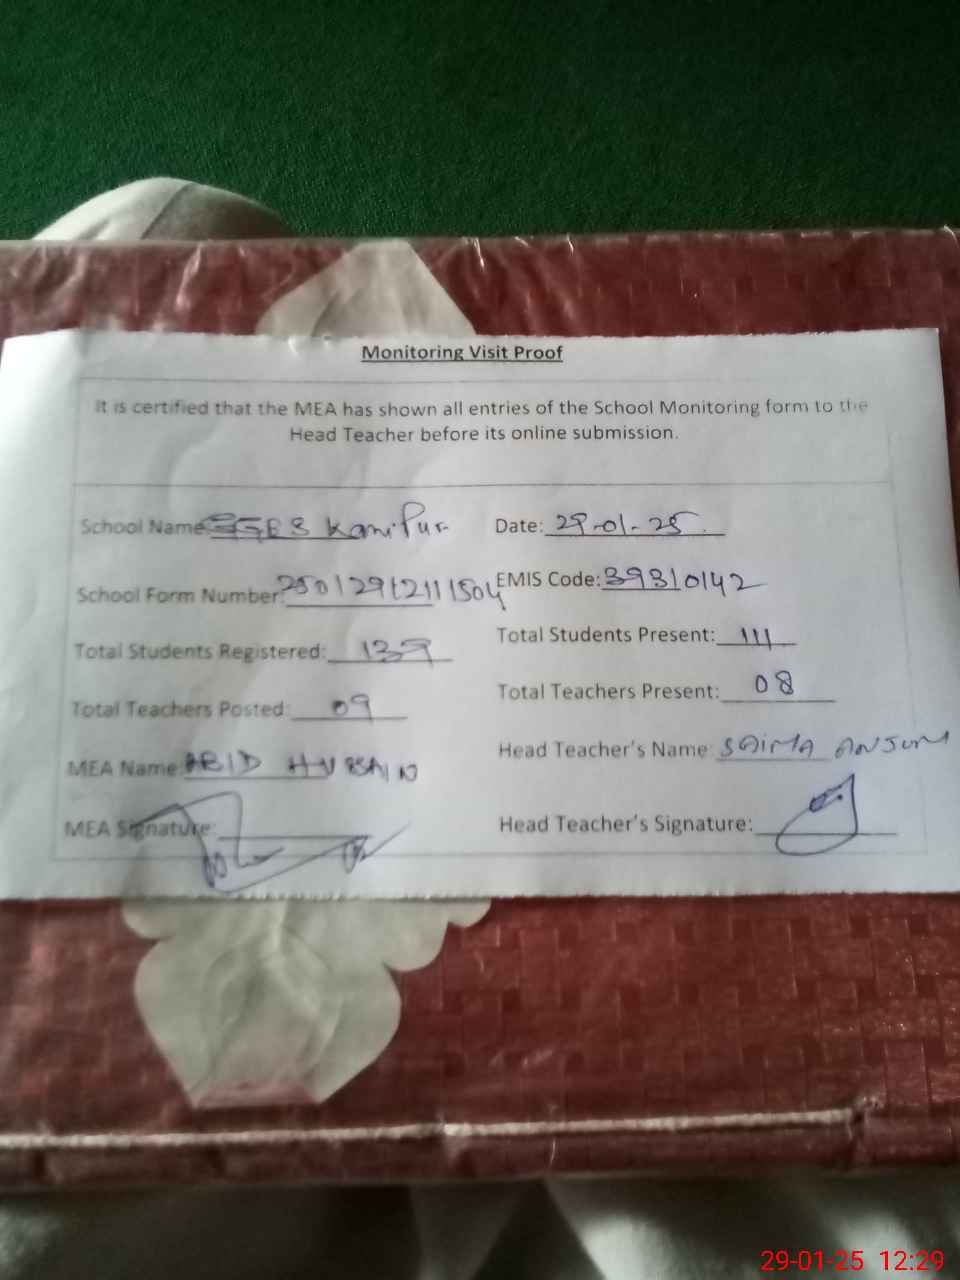 Monitoring Visit Proof
It is certified that the MEA has shown all entries of the School Monitoring form to the
Head Teacher before its online submission.
School Name: GGES Kanipur Date: 29-01-25.
School Form Number: EMIS Code: 39310142
Total Students Registered: 139 Total Students Present: 111
Total Teachers Posted: 09 Total Teachers Present: 08
MEA Name: ABID HUSSAIN Head Teacher's Name: SAIMA ANJUM
MEA Signature: Head Teacher's Signature:
29-01-25 12:29